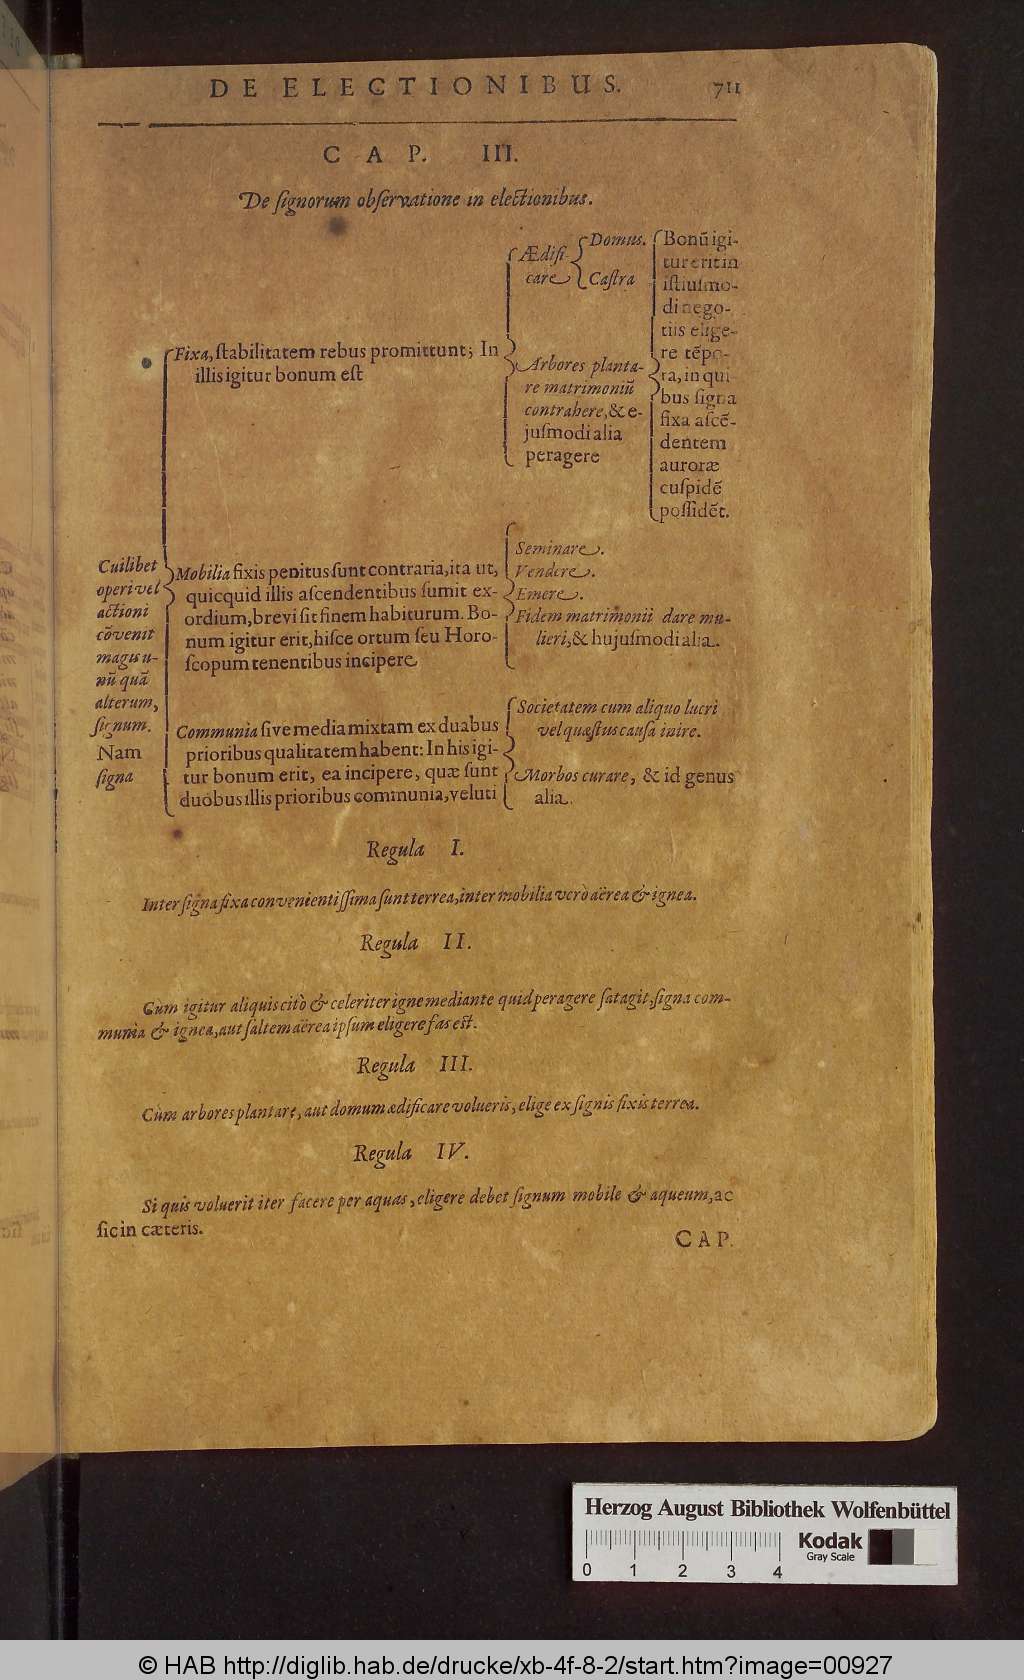 DE ELECTIONIBUS. 711
CAP. III.
De signorum observatione in electionibus.
Cuilibet
operi vel
actioni
cõvenit
magis u-
nũ quã
alterum,
signum.
Nam
signa
Fixa, stabilitatem rebus promittunt; In
illis igitur bonum est
Ædifi-
care
Domus.
Castra
Arbores planta-
re matrimoniũ
contrahere, & e-
jusmodi alia
peragere
Bonũ igi-
tur erit in
istiusmo-
di nego-
tiis elige-
re tẽpo-
ra, in qui
bus signa
fixa ascẽ-
dentem
auroræ
cuspidẽ
possidẽt.
Mobilia fixis penitus sunt contraria, ita ut,
quicquid illis ascendentibus sumit ex-
ordium, brevi sit finem habiturum. Bo-
num igitur erit, hisce ortum seu Horo-
scopum tenentibus incipere
Seminare.
Vendere.
Emere.
Fidem matrimonii dare mu-
lieri, & hujusmodi alia.
Communia sive media mixtam ex duabus
prioribus qualitatem habent: In his igi-
tur bonum erit, ea incipere, quæ sunt
duobus illis prioribus communia, veluti
Societatem cum aliquo lucri
vel quæstus causa inire.
Morbos curare, & id genus
alia.
Regula I.
Inter signa fixa convenientissima sunt terrea, inter mobilia verò aërea & ignea.
Regula II.
Cùm igitur aliquis citò & celeriter igne mediante quid peragere satagit, signa com-
munia & ignea, aut saltem aërea ipsum eligere fas est.
Regula III.
Cùm arbores plantare, aut domum ædificare volueris, elige ex signis fixis terrea.
Regula IV.
Si quis voluerit iter facere per aquas, eligere debet signum mobile & aqueum, ac
sic in cæteris.
CAP.
Herzog August Bibliothek Wolfenbüttel
Kodak
Gray Scale
0 1 2 3 4
© HAB http://diglib.hab.de/drucke/xb-4f-8-2/start.htm?image=00927